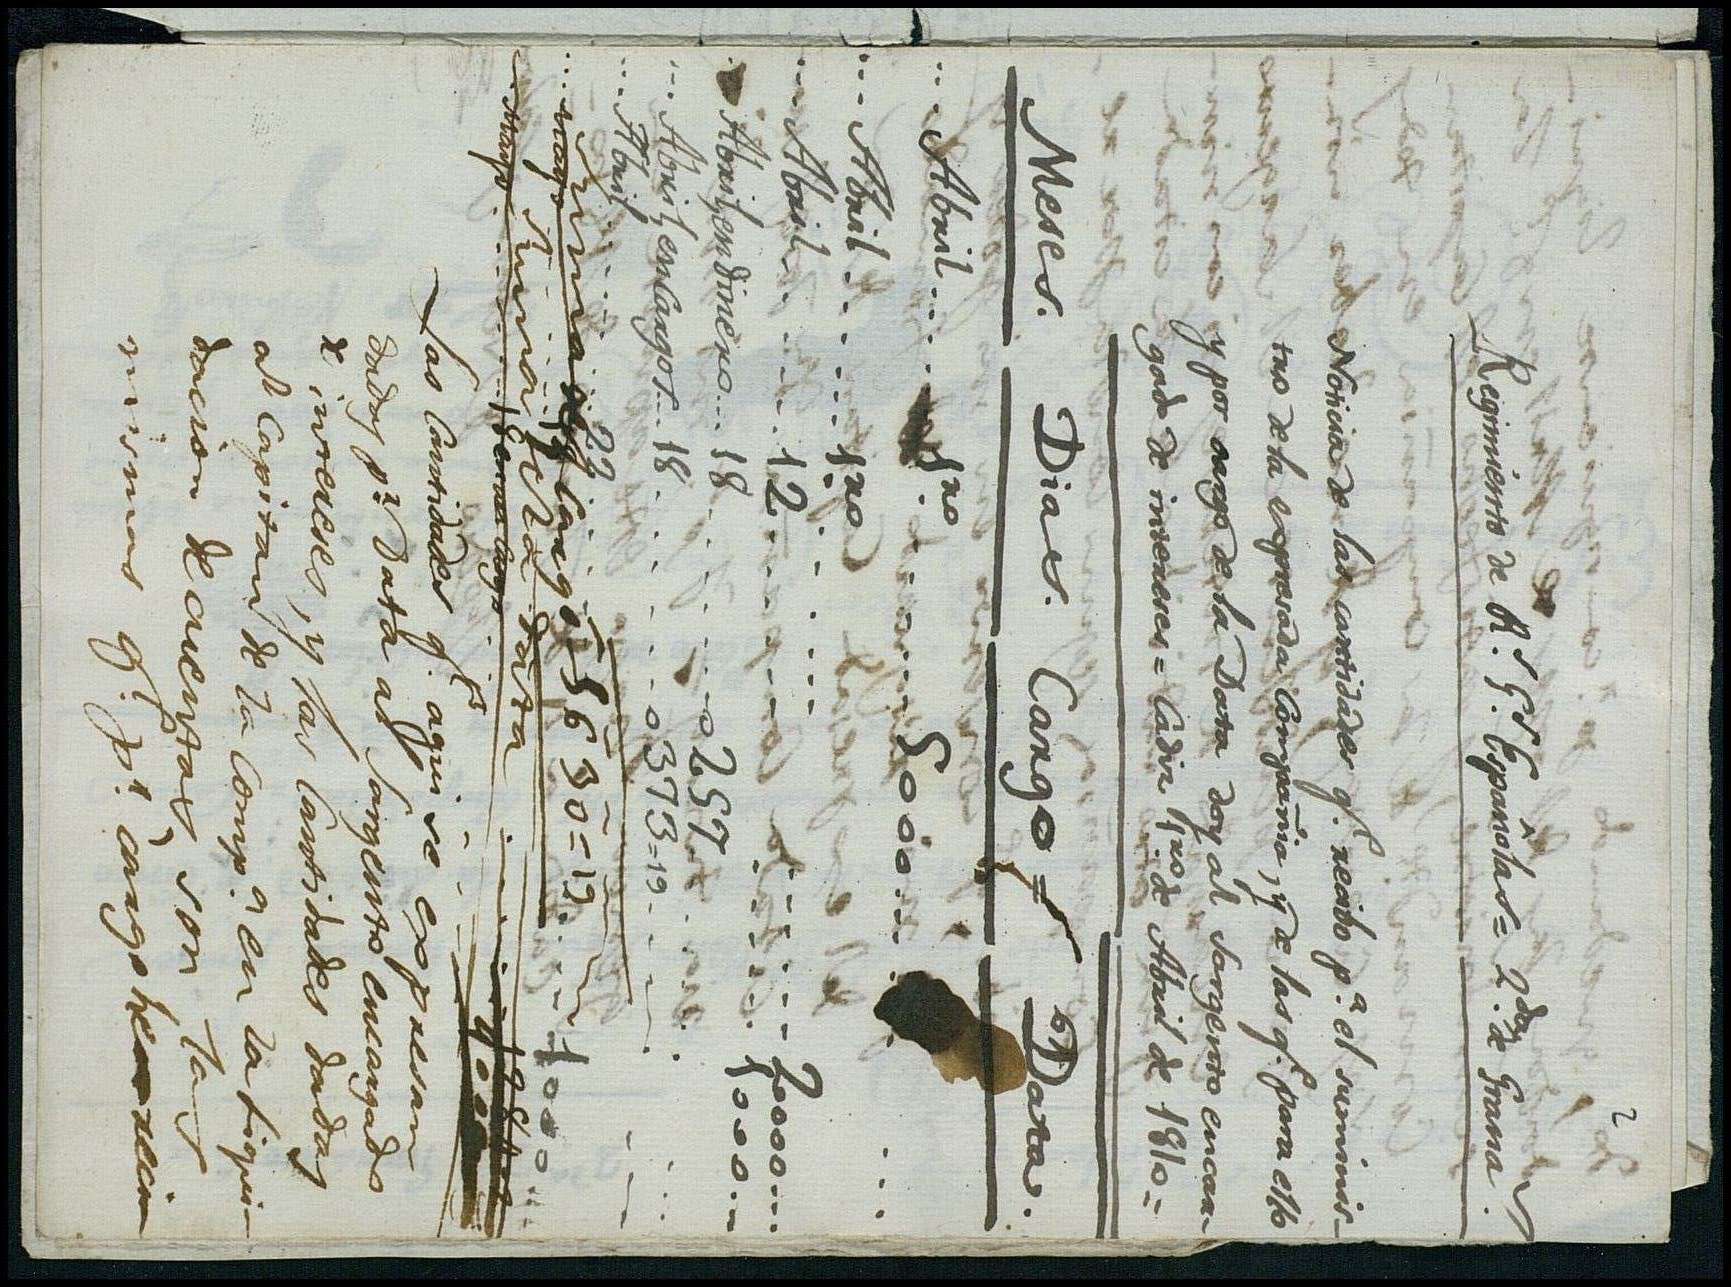 2
Regimiento de R.s G.s Españolas = 2.da de Grana.
Noticia de las cantidades q.e recibo p.a el suminis-
tro de la expresada Compañia, y de las q.e para ello
y por cargo de la Data doy al Sargento encar-
gado de intereses = Cadiz 1.ro de Abril de 1810 =
Meses. Dias. Cargo = Data.
Abril 1.ro 5000
Abril 1.ro
Abril 12 2000
Abril en dinero 18 0257 1000
Abril en cargos 18 0373=19
Abril 22 1000
Suma el cargo 5630=19
Suma la Data
Las Cantidades q.e aqui se expresan
dadas p.r Data al Sargento encargado
de intereses, y las Cantidades dadas
al Capitan de la Comp.a en la liqui-
dacion de cuentas, son las
mismas q.e p.r cargo